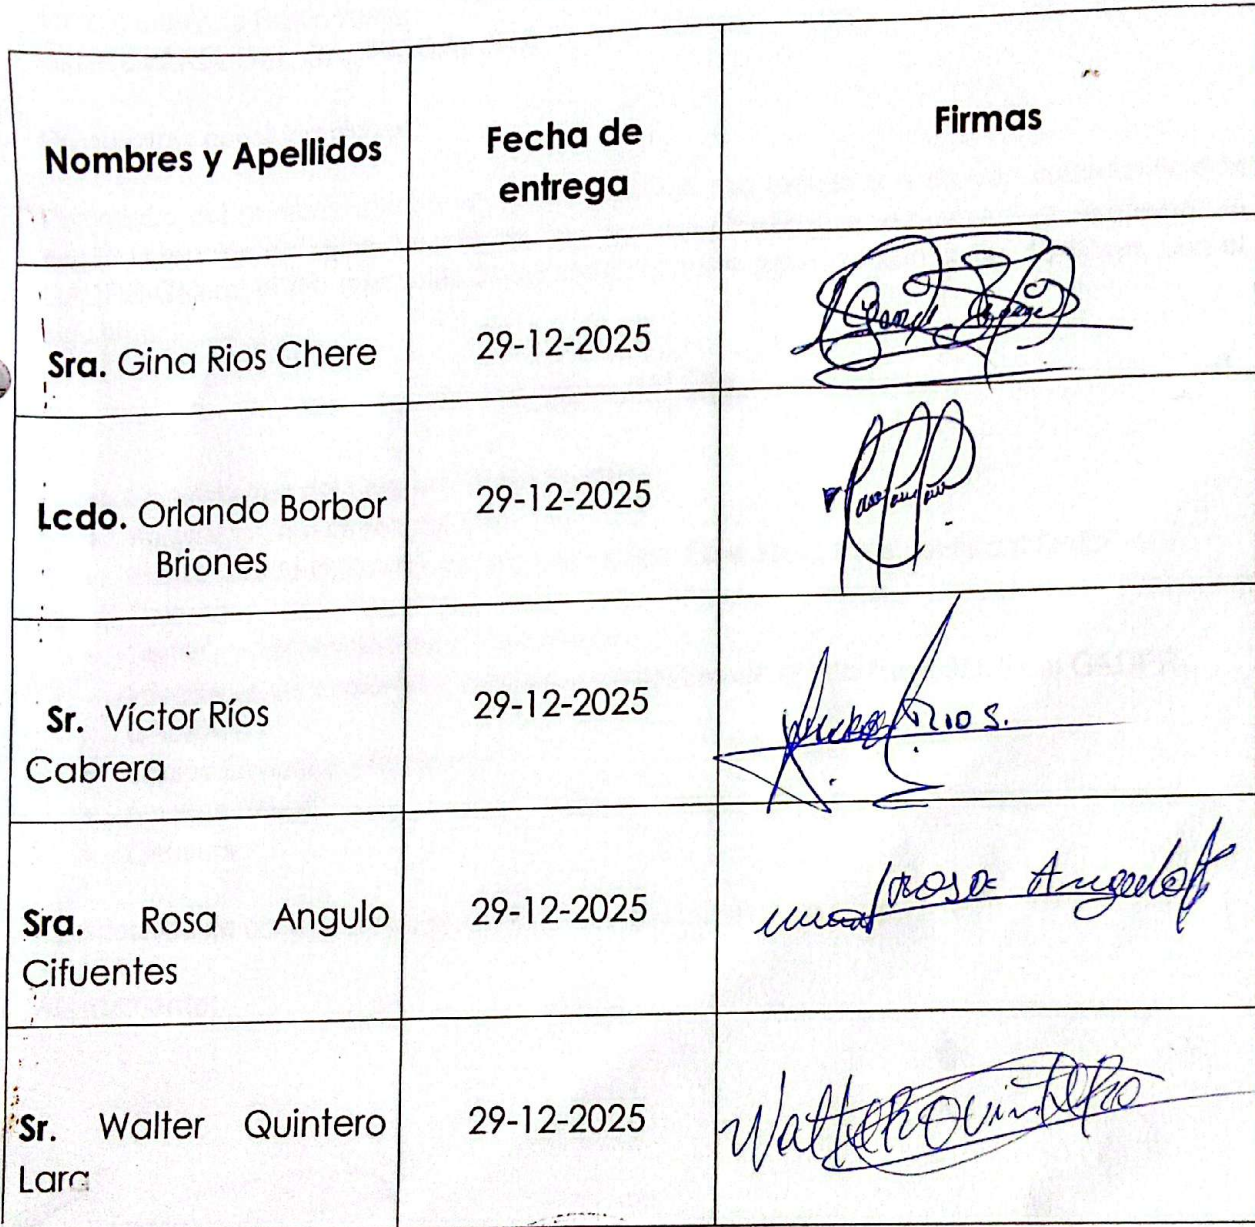 Nombres y Apellidos
Fecha de
entrega
Firmas
Sra. Gina Rios Chere
29-12-2025
Lcdo. Orlando Borbor
Briones
29-12-2025
Sr. Víctor Ríos
Cabrera
29-12-2025
Rios.
Sra. Rosa Angulo
Cifuentes
29-12-2025
Rosa Angulo
Sr. Walter Quintero
Lara
29-12-2025
Walter Quintero